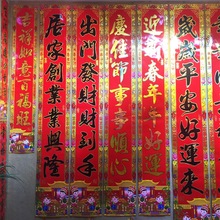 歲歲平安好運來
迎新春年年好運
慶佳節事事順心
出門發財財到手
居家創業業興隆
吉祥如意百福旺